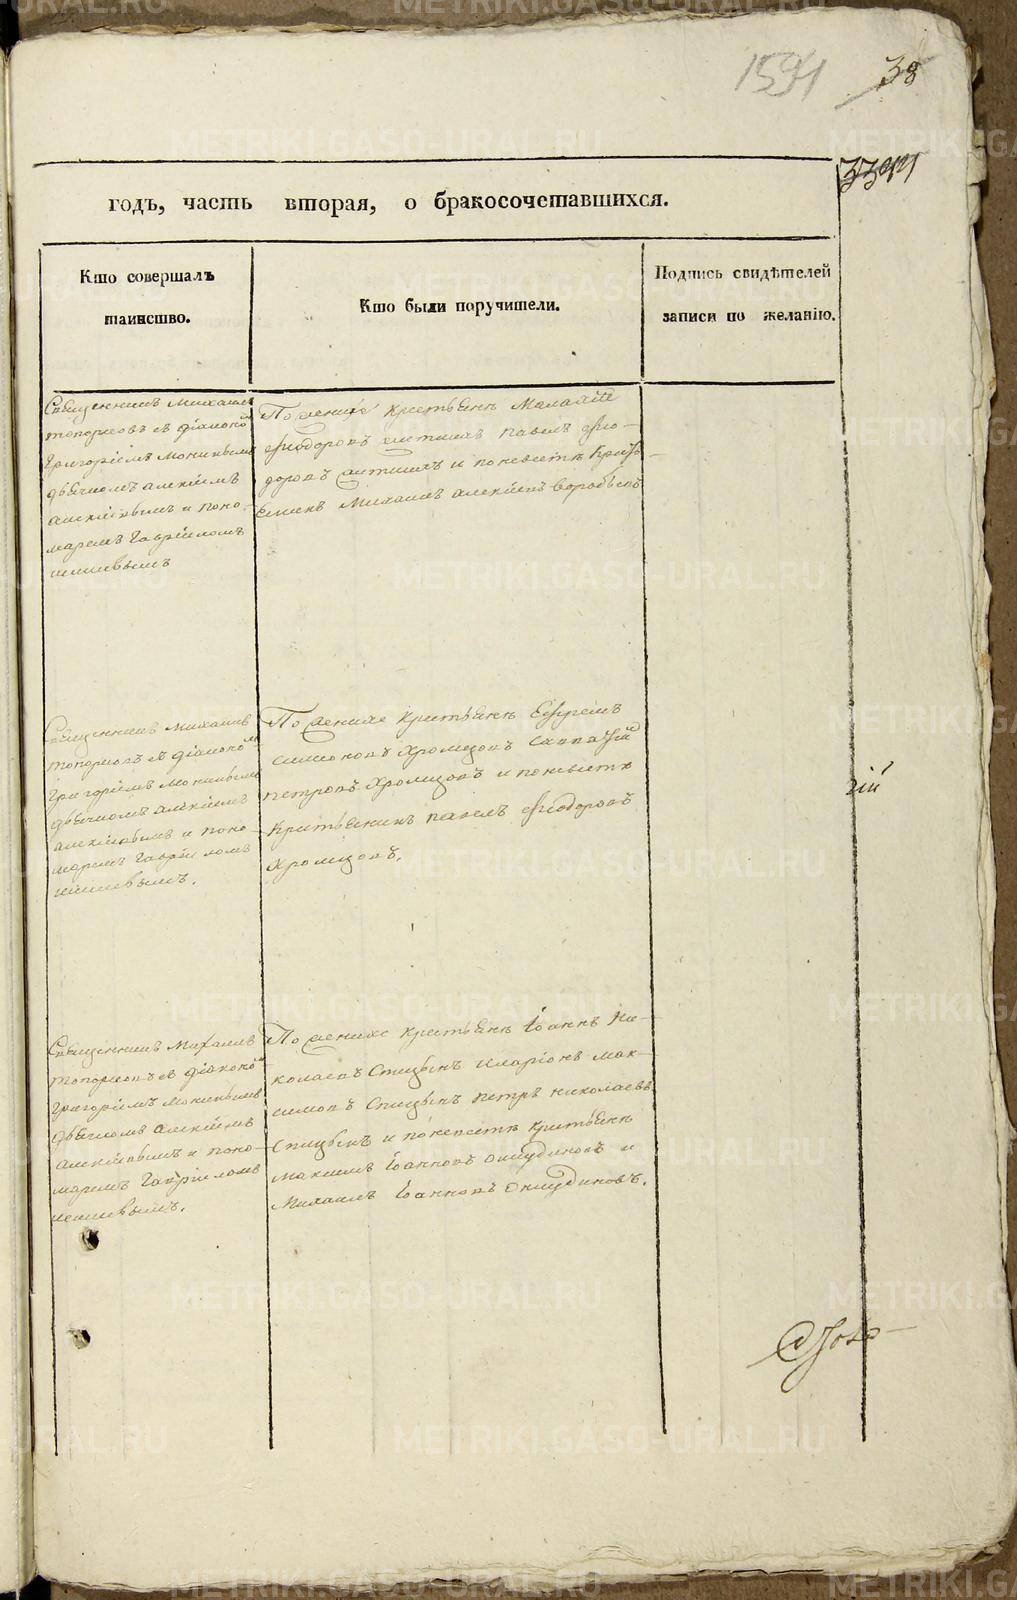 1591
38
3344
годъ, часть вторая, о бракосочетавшихся.
Кто совершалъ
таинство.
Кто были поручители.
Подпись свидѣтелей
записи по желанію.
Священникъ Михаилъ
топорковъ съ діакономъ
Григоріемъ
дьячкомъ алексіемъ
и поно-
маремъ Гавріиломъ
По женихѣ крестьянъ Малахій
Ѳеодоровъ павелъ Ѳео-
доровъ и по невѣстѣ Крестья-
Михаилъ алексіевъ воробьевъ
Священникъ Михаилъ
топорковъ съ діакономъ
Григоріемъ
дьячкомъ алексіемъ
и поно-
маремъ Гавріиломъ
По женихѣ крестьянъ Ефремъ
симоновъ Хромцовъ Савватій
петровъ Хромцовъ и по невѣстѣ
крестьянинъ павелъ Ѳеодоровъ
Хромцовъ.
гій
Священникъ Михаилъ
топорковъ съ діакономъ
Григоріемъ
дьячкомъ алексіемъ
и поно-
маремъ Гавріиломъ
По женихѣ крестьянъ Іоаннъ Ни-
колаевъ Спицынъ иларіонъ мак-
симовъ Спицынъ петръ николаевъ
Спицынъ и по невѣстѣ крестьянъ
максимъ Іоанновъ Окиудиновъ и
Михаилъ Іоанновъ Окиудиновъ.
METRIKI.GASO-URAL.RU